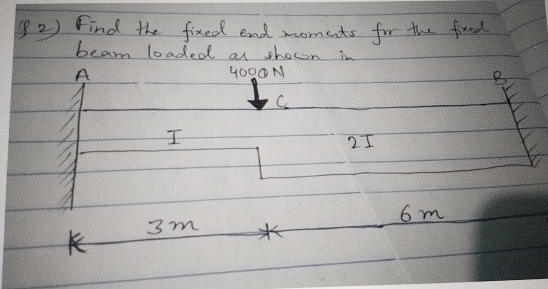 Q 2) Find the fixed end moments for the fixed
beam loaded as shown in
A 4000N B
C
I 2I
3m 6m